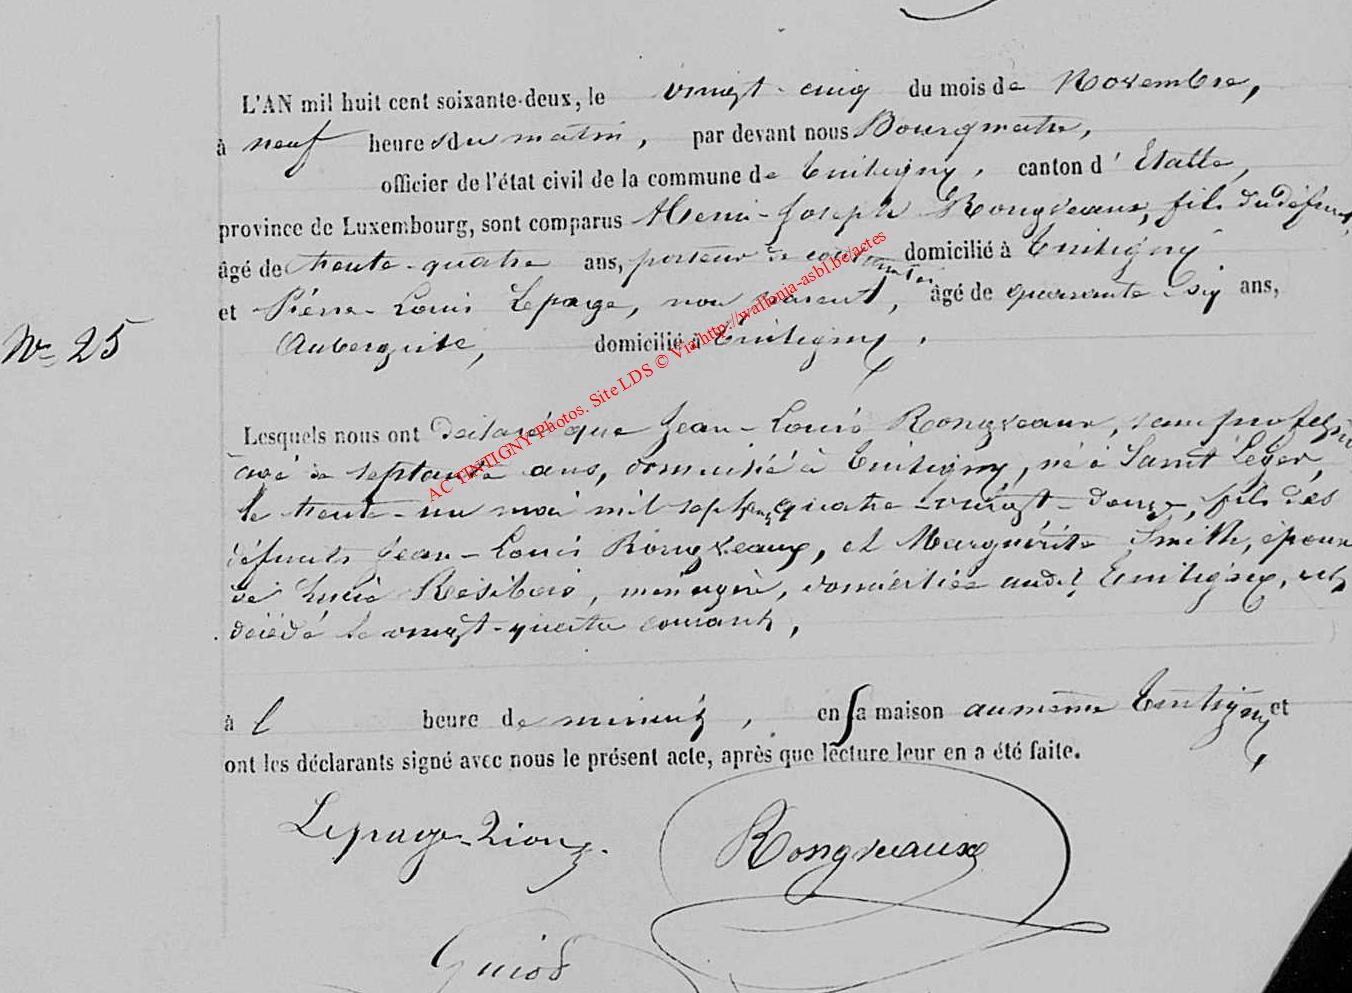 L'AN mil huit cent soixante-deux, le vingt-cinq du mois de Novembre,
à neuf heures du matin, par devant nous Bourgmestre,
officier de l'état civil de la commune de Tintigny, canton d'Etalle,
province de Luxembourg, sont comparus Henri-Joseph Rongveaux, fils du défunt,
âgé de trente-quatre ans, porteur de contraintes domicilié à Tintigny
et Pierre-Louis Lepage, non parent, âgé de quarante-six ans,
N° 25
Aubergiste, domicilié à Tintigny.
Lesquels nous ont déclaré que Jean-Louis Rongveaux, sans profession
âgé de septante ans, domicilié à Tintigny, né à Saint Léger,
le trente-un mai mil sept cent quatre-vingt-douze, fils des
défunts Jean-Louis Rongveaux, et Marguerite Smith, époux
de Lucie Résibois, ménagère, domiciliée audit Tintigny, est
décédé le vingt-quatre courant,
à l heure de minuit, en sa maison au même Tintigny, et
ont les déclarants signé avec nous le présent acte, après que lecture leur en a été faite.
Lepage-
Rongveaux
Guiot
AC TINTIGNY Photos. Site LDS © Via http://wallonia-asbl.be/actes